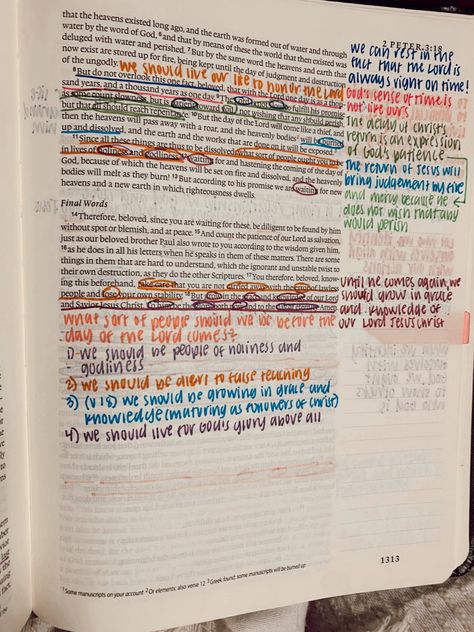 2 PETER 3:18
that the heavens existed long ago, and the earth was formed out of water and through
water by the word of God, 6 and that by means of these the world that then existed was
deluged with water and perished. 7 But by the same word the heavens and earth that
now exist are stored up for fire, being kept until the day of judgment and destruction
of the ungodly. we should live our life to honor the Lord
8 But do not overlook this one fact, beloved, that with the Lord one day is as a thou-
sand years, and a thousand years as one day. 9 The Lord is not slow to fulfill his promise
as some count slowness, but is patient toward you, not wishing that any should perish,
but that all should reach repentance. 10 But the day of the Lord will come like a thief, and
then the heavens will pass away with a roar, and the heavenly bodies will be burned
up and dissolved, and the earth and the works that are done on it will be exposed.
11 Since all these things are thus to be dissolved, what sort of people ought you to be
in lives of holiness and godliness, 12 waiting for and hastening the coming of the day of
God, because of which the heavens will be set on fire and dissolved, and the heavenly
bodies will melt as they burn! 13 But according to his promise we are waiting for new
heavens and a new earth in which righteousness dwells.
Final Words
14 Therefore, beloved, since you are waiting for these, be diligent to be found by him
without spot or blemish, and at peace. 15 And count the patience of our Lord as salvation,
just as our beloved brother Paul also wrote to you according to the wisdom given him,
16 as he does in all his letters when he speaks in them of these matters. There are some
things in them that are hard to understand, which the ignorant and unstable twist to
their own destruction, as they do the other Scriptures. 17 You therefore, beloved, know-
ing this beforehand, take care that you are not carried away with the error of lawless
people and lose your own stability. 18 But grow in the grace and knowledge of our Lord
and Savior Jesus Christ. To him be the glory both now and to the day of eternity. Amen.
what sort of people should we be before the
day of the Lord comes?
1) we should be people of holiness and
godliness
2) we should be alert to false teaching
3) (v 18) we should be growing in grace and
knowledge (maturing as followers of Christ)
4) we should live for God's glory above all
we can rest in the
fact that the Lord is
always right on time!
God's sense of time is
not like ours
the delay of Christ's
return is an expression
of God's patience
the return of Jesus will
bring judgement by fire
and mercy because he
does not wish that any
would perish
until he comes again, we
should grow in grace
and knowledge of
our Lord Jesus Christ
1 Some manuscripts on your account 2 Or elements; also verse 12 3 Greek found; some manuscripts will be burned up
1313